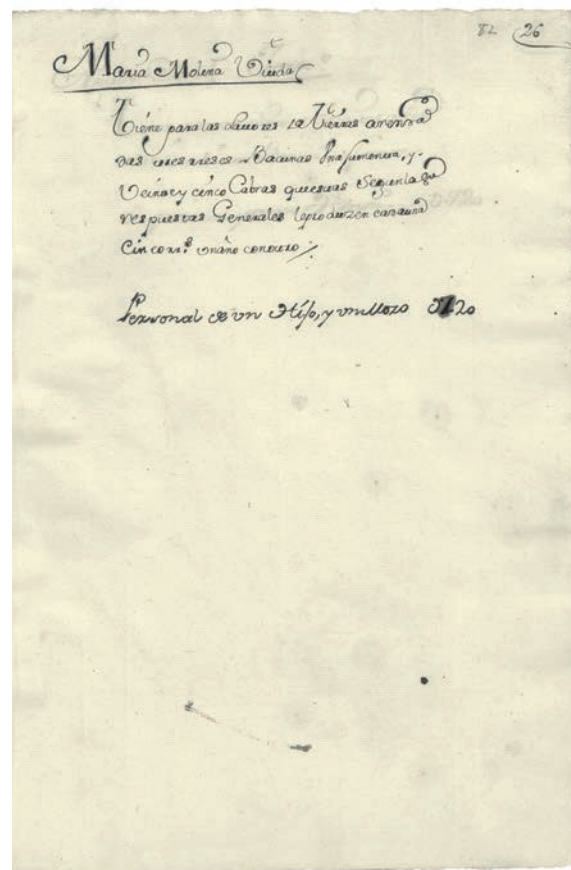 82 26
Maria Molina Viuda
Tiene para las Lavores de Tierras arrenda
das tres reses Bacunas Una Jumenta, y
Veinte y cinco Cabras que estas Segun las
respuestas Generales le produzen cada una
Cinco rr.s un año con otro
Personal de un Hijo, y un Mozo 120